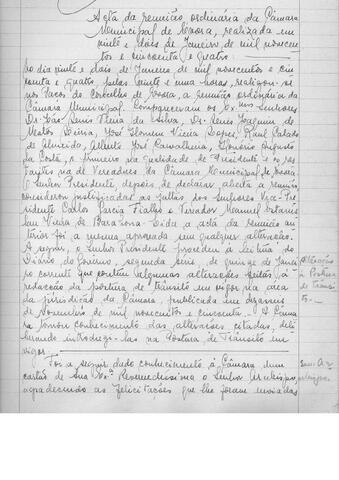 Acta da reunião ordinária da Câmara
Municipal de Evora, realizada em
vinte e dois de Janeiro de mil novecen
tos e cincoenta e quatro
No dia vinte e dois de Janeiro de mil novecentos e cin
coenta e quatro, pelas vinte e uma horas, realizou-se
nos Paços do Concelho de Evora, a reunião ordinária da
Câmara Municipal. Compareceram os Exmos Senhores
Dr. João Luís Vieira da Silva, Dr. Denis Joaquim de
Matos, José Homem Vieira Lopes, Raul Calado
de Almeida, Alberto José Carvalheira, Honório Augusto
da Costa, o primeiro na qualidade de Presidente e os res
tantes na de Vereadores da Câmara Municipal de Evora.
O Senhor Presidente depois de declarar aberta a reunião,
considerou justificadas as faltas dos Senhores Vice-Pre
sidente Carlos Garcia Fialho e Vereador Manuel Estanis
lau Vieira de Barahona. Lida a acta da reunião an
terior foi a mesma aprovada sem qualquer alteração.
A seguir, o Senhor Presidente procedeu à leitura do
Diário do Governo, segunda série, de quinze de Janei
ro corrente que contém algumas alterações feitas à
redacção da postura de trânsito em vigor na área
da jurisdição da Câmara, publicada em dezasseis
de Novembro de mil novecentos e cincoenta. A Câma
ra tomou conhecimento das alterações citadas, deli
berando introduzi-las na Postura de Trânsito em
vigor.
Alteração
à Postura
de Trânsi
to.
Foi a seguir dado conhecimento à Câmara dum
cartão de Sua Exª Reverendíssima o Senhor Arcebispo,
agradecendo as felicitações que lhe foram enviadas